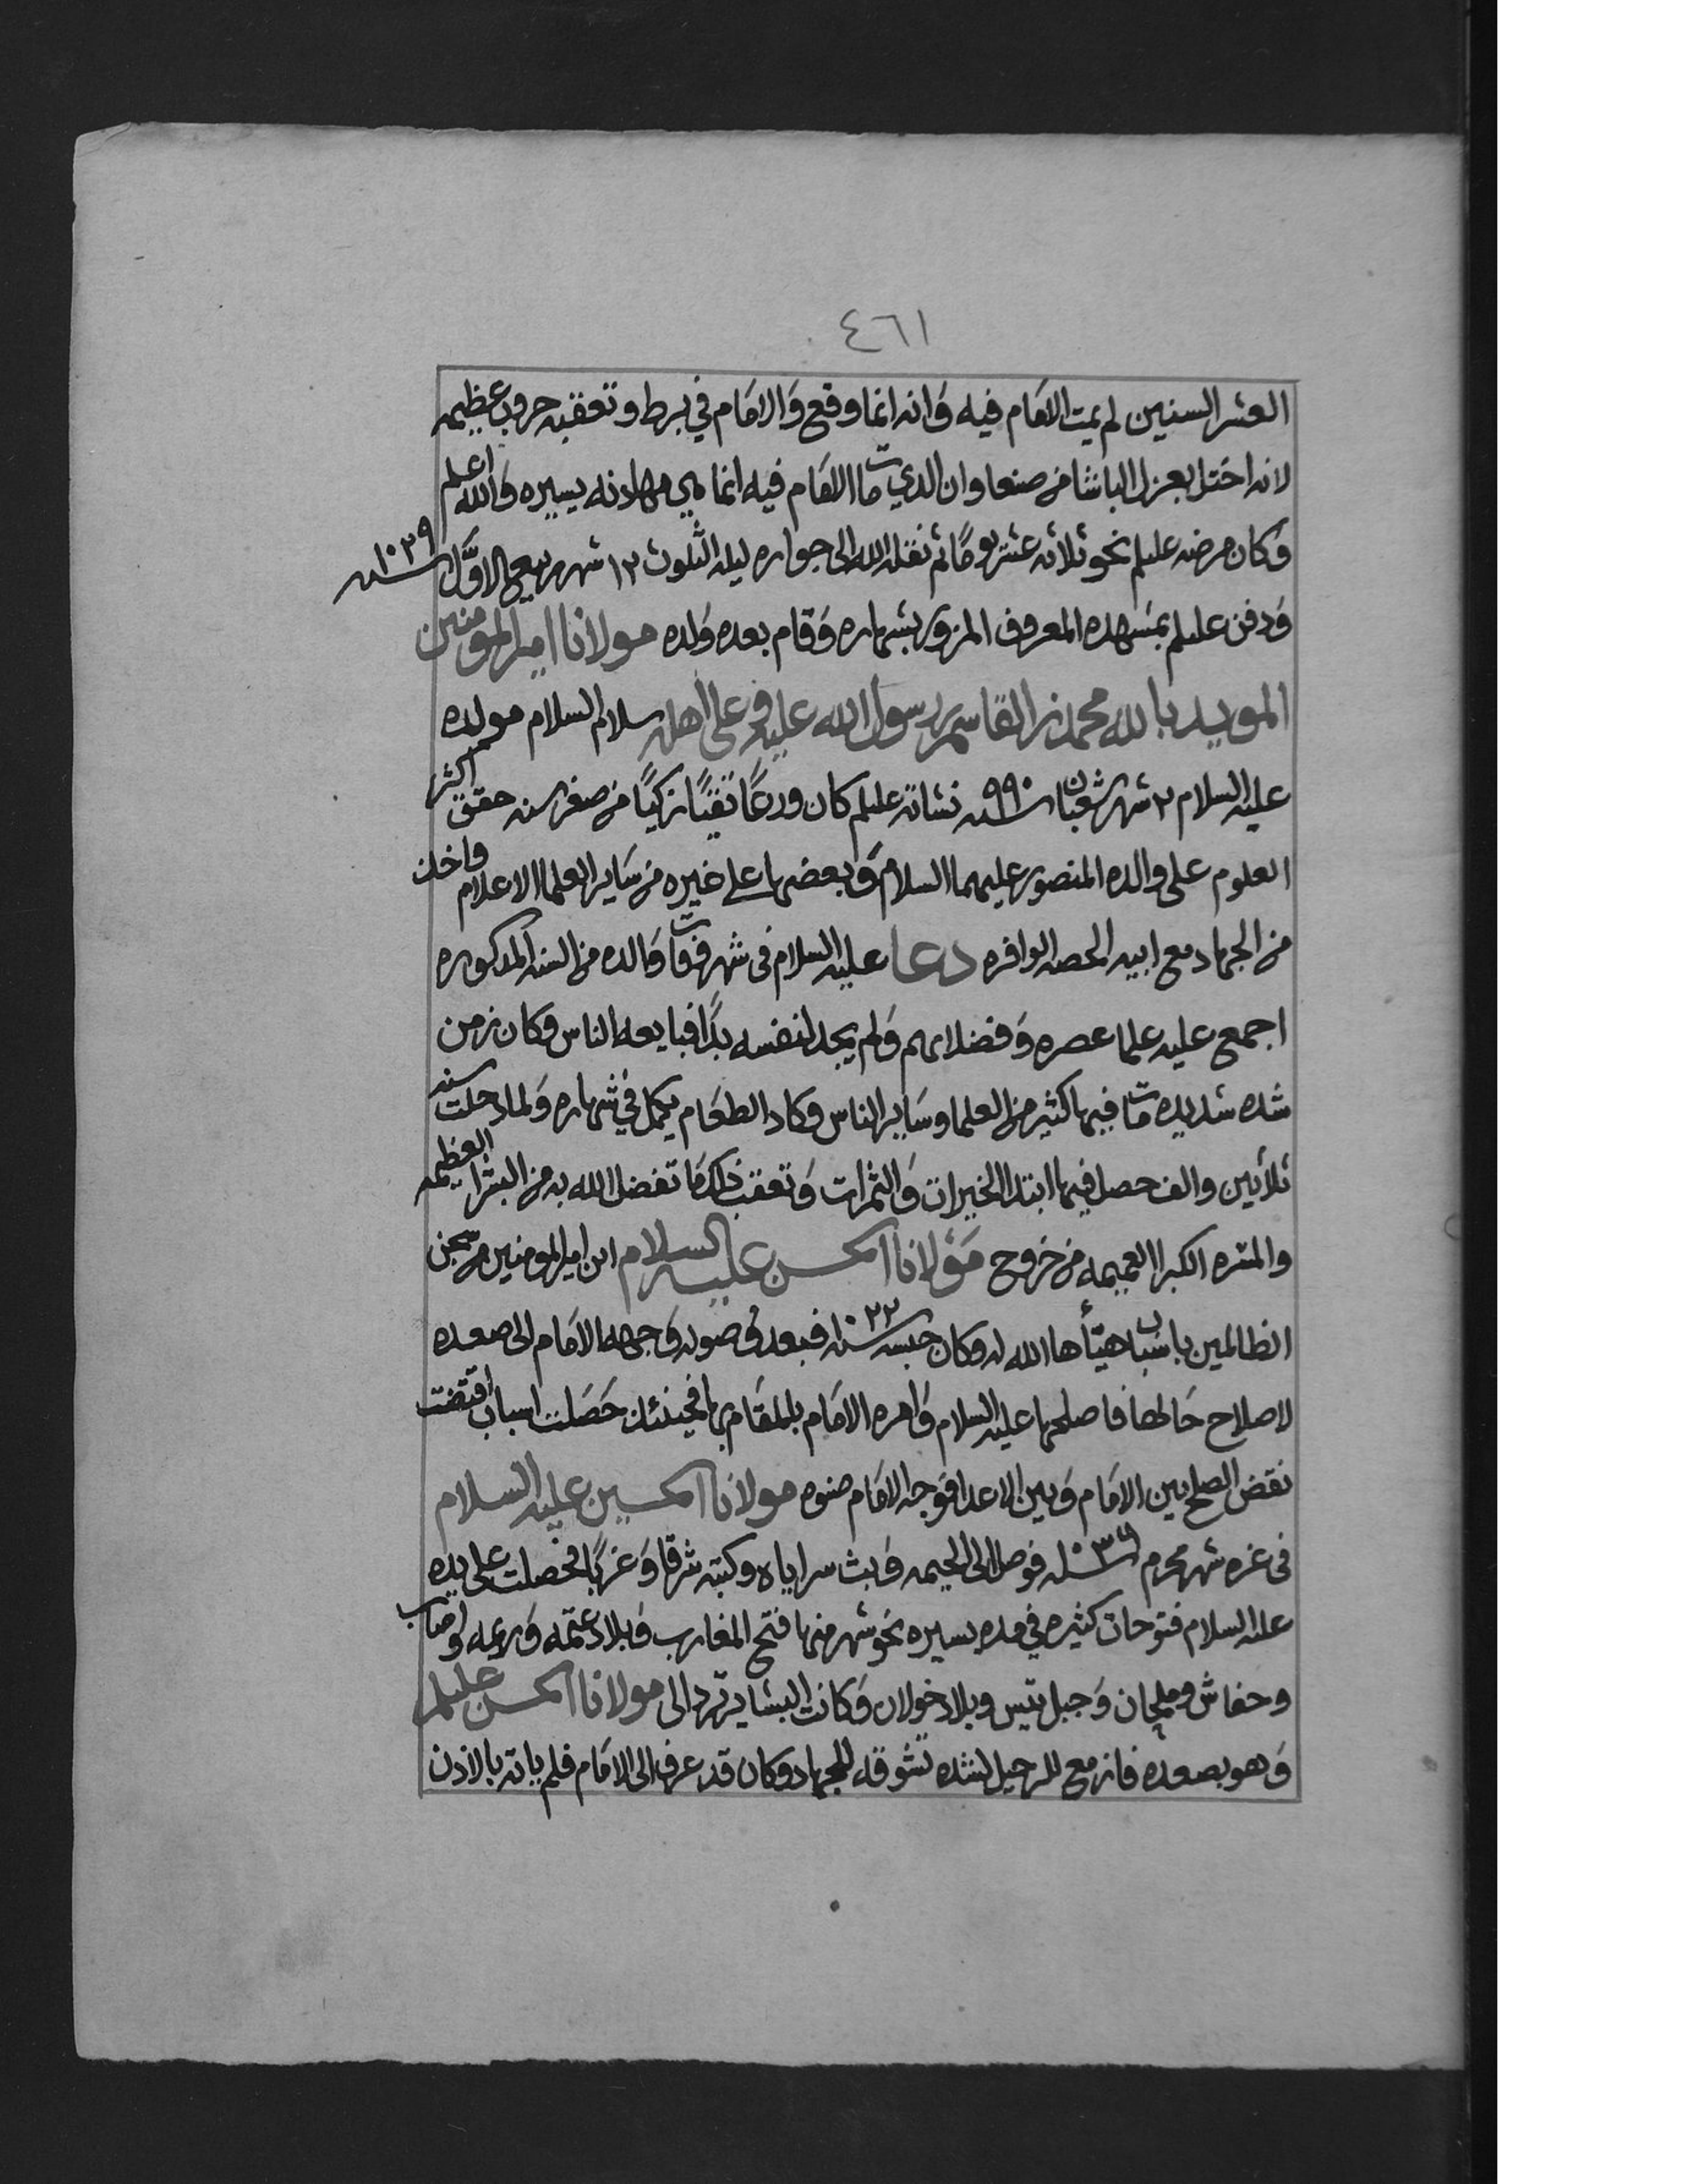 ٤٦١
العشر السنين لم يمت الامام فيه وانه انما وقع والامام في برط وتعقبه حروب عظيمه
لانه اختل بعزل الباشا من صنعا وان الدي مات الامام فيه انما هي مهادنه يسيره والله اعلم
وكان مرضه عليلم نحو ثلاثه عشر يومًا ثم نقله الله الى جواره ليله الثلوث ١٢ شهر ربيع الاوّل سنه ١٠٢٩
ودفن عليلم بمشهده المعروف المزور بشهاره وقام بعده ولده مولانا امير المومنين
المويد بالله محمد بن القاسم بن رسول الله عليه وعلى اهله سلام السلام مولده
عليه السلام ٢ شهر شعبان سنه ٩٩٠ نشاته عليلم كان ورعًا تقيًا زكيًا من صغر سنه حقق اكثر
العلوم على والده المنصور عليهما السلام وبعضها على غيره من ساير العلما الاعلام واخذ
من الجهاد مع ابيه الحصه الوافره دعا عليه السلام في شهر وفات والده من السنه المذكوره
اجمع عليه علما عصره وفضلاىهم ولم يجد لنفسه بدًا فبايعه الناس وكان زمن
شده شديده مات فيها كثير من العلما وساير الناس وكاد الطعام يكمل في شهاره ولما دخلت سنه
ثلاثين والف حصل فيها ابتدا الخيرات والثمرات وتعقب ذلك ما تفضل الله به من البشرا العظيمه
والمسره الكبرا العميمه من خروج مولانا الحسن عليه السلام ابن امير المومنين من سجن
الظالمين باسباب هيّأها الله له وكان حبسه سنه ١٠٢٢ فبعد وصوله وجهه الامام الى صعده
لاصلاح حالها فاصلحها عليه السلام وامره الامام بالمقام بها فحينئذ حصلت اسباب اقتضت
نقض الصلح بين الامام وبين الاعدا فوجه الامام صنوه مولانا الحسين عليه السلام
في غره شهر محرم سنه ١٠٣٦ فوصل الى الحيمه وبث سراياه وكتبه شرقا وغربًا فحصلت على يده
عليه السلام فتوحات كثيره في مده يسيره نحو شهر منها فتح المغارب وبلاد عتمه وريمه ووصاب
وحفاش وملحان وجبل تيس وبلاد خولان وكانت البشاير ترد الى مولانا الحسن عليلم
وهو بصعده فازمع للرحيل لشده تشوقه للجهاد وكان قد عرف الى الامام فلم ياته بالاذن